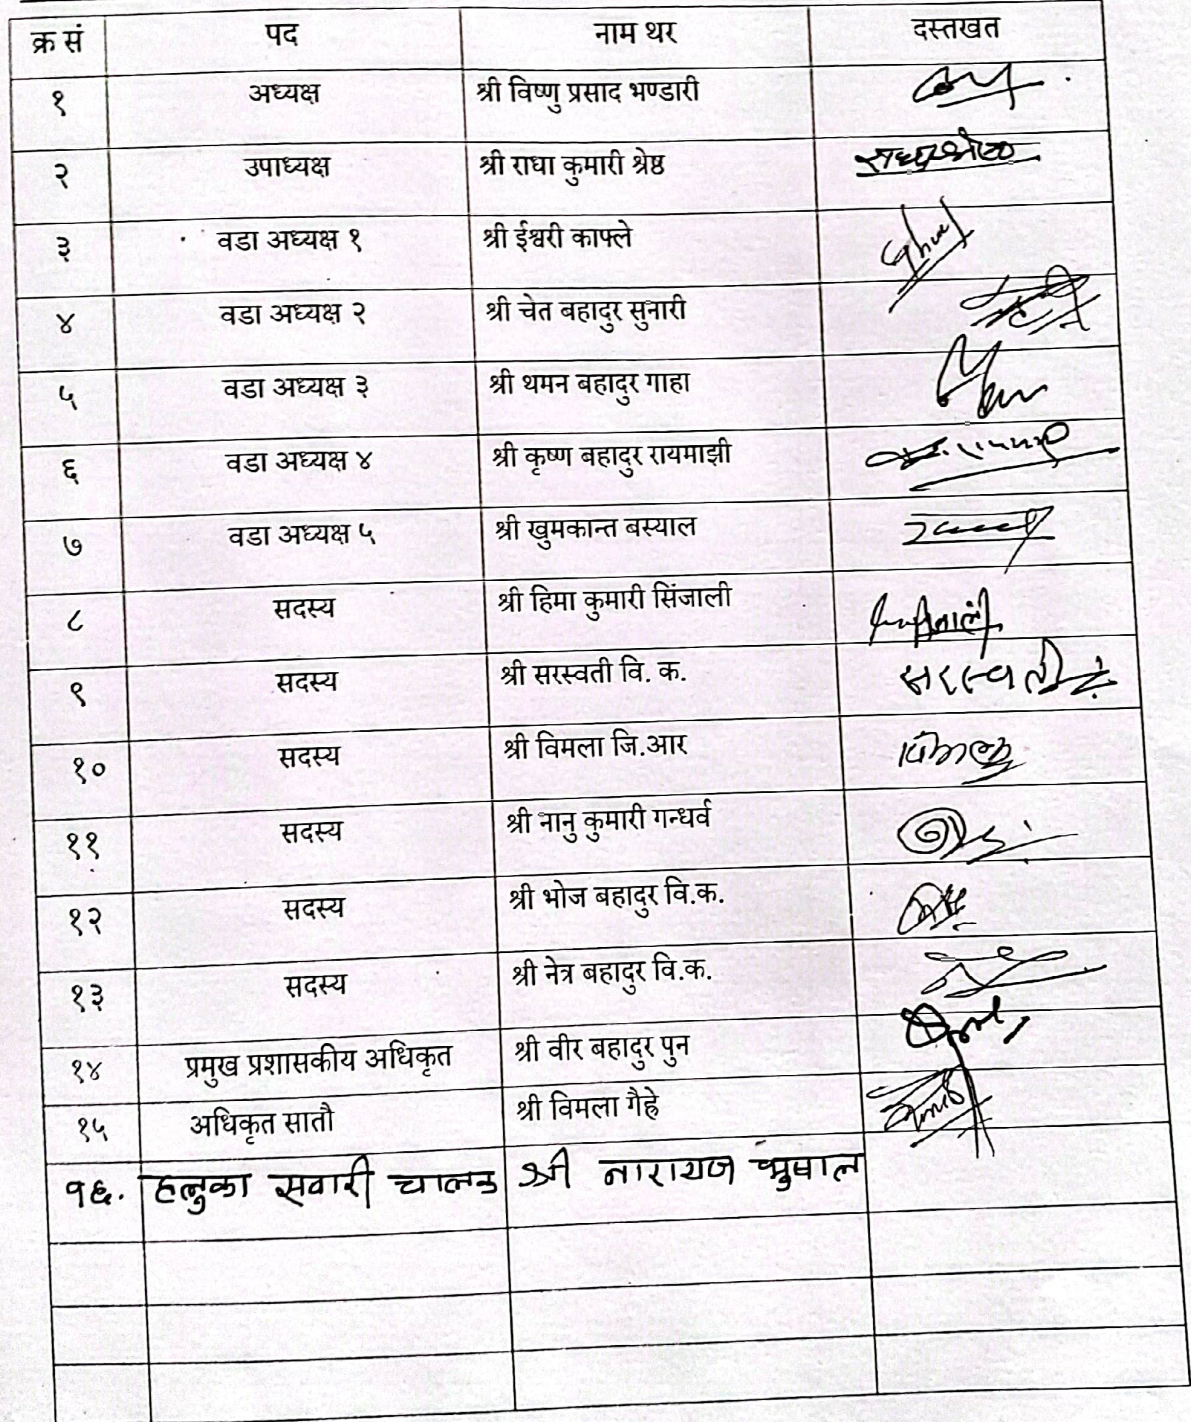 क्र सं पद नाम थर दस्तखत
१ अध्यक्ष श्री विष्णु प्रसाद भण्डारी
२ उपाध्यक्ष श्री राधा कुमारी श्रेष्ठ
३ वडा अध्यक्ष १ श्री ईश्वरी काफ्ले
४ वडा अध्यक्ष २ श्री चेत बहादुर सुनारी
५ वडा अध्यक्ष ३ श्री थमन बहादुर गाहा
६ वडा अध्यक्ष ४ श्री कृष्ण बहादुर रायमाझी
७ वडा अध्यक्ष ५ श्री खुमकान्त बस्याल
८ सदस्य श्री हिमा कुमारी सिंजाली
९ सदस्य श्री सरस्वती वि. क. सरस्वती
१० सदस्य श्री विमला जि.आर
११ सदस्य श्री नानु कुमारी गन्धर्व
१२ सदस्य श्री भोज बहादुर वि.क.
१३ सदस्य श्री नेत्र बहादुर वि.क.
१४ प्रमुख प्रशासकीय अधिकृत श्री वीर बहादुर पुन
१५ अधिकृत सातौ श्री विमला गैह्रे
१६. हलुका सवारी चालक श्री नारायण